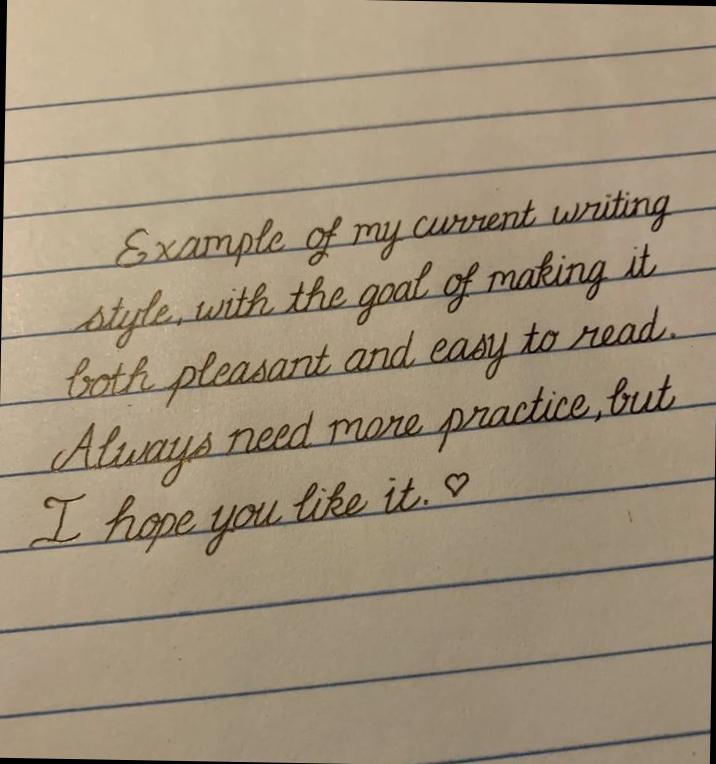 Example of my current writing
style, with the goal of making it
both pleasant and easy to read.
Always need more practice, but
I hope you like it. ♡